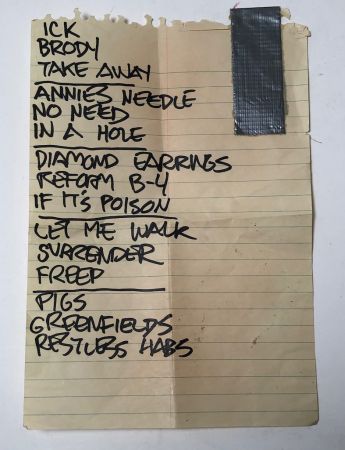 ICK
BRODY
TAKE AWAY
ANNIES NEEDLE
NO NEED
IN A HOLE
DIAMOND EARRINGS
REFORM B-4
IF IT'S POISON
LET ME WALK
SURRENDER
FREED
PIGS
GREENFIELDS
RESTLESS HABS